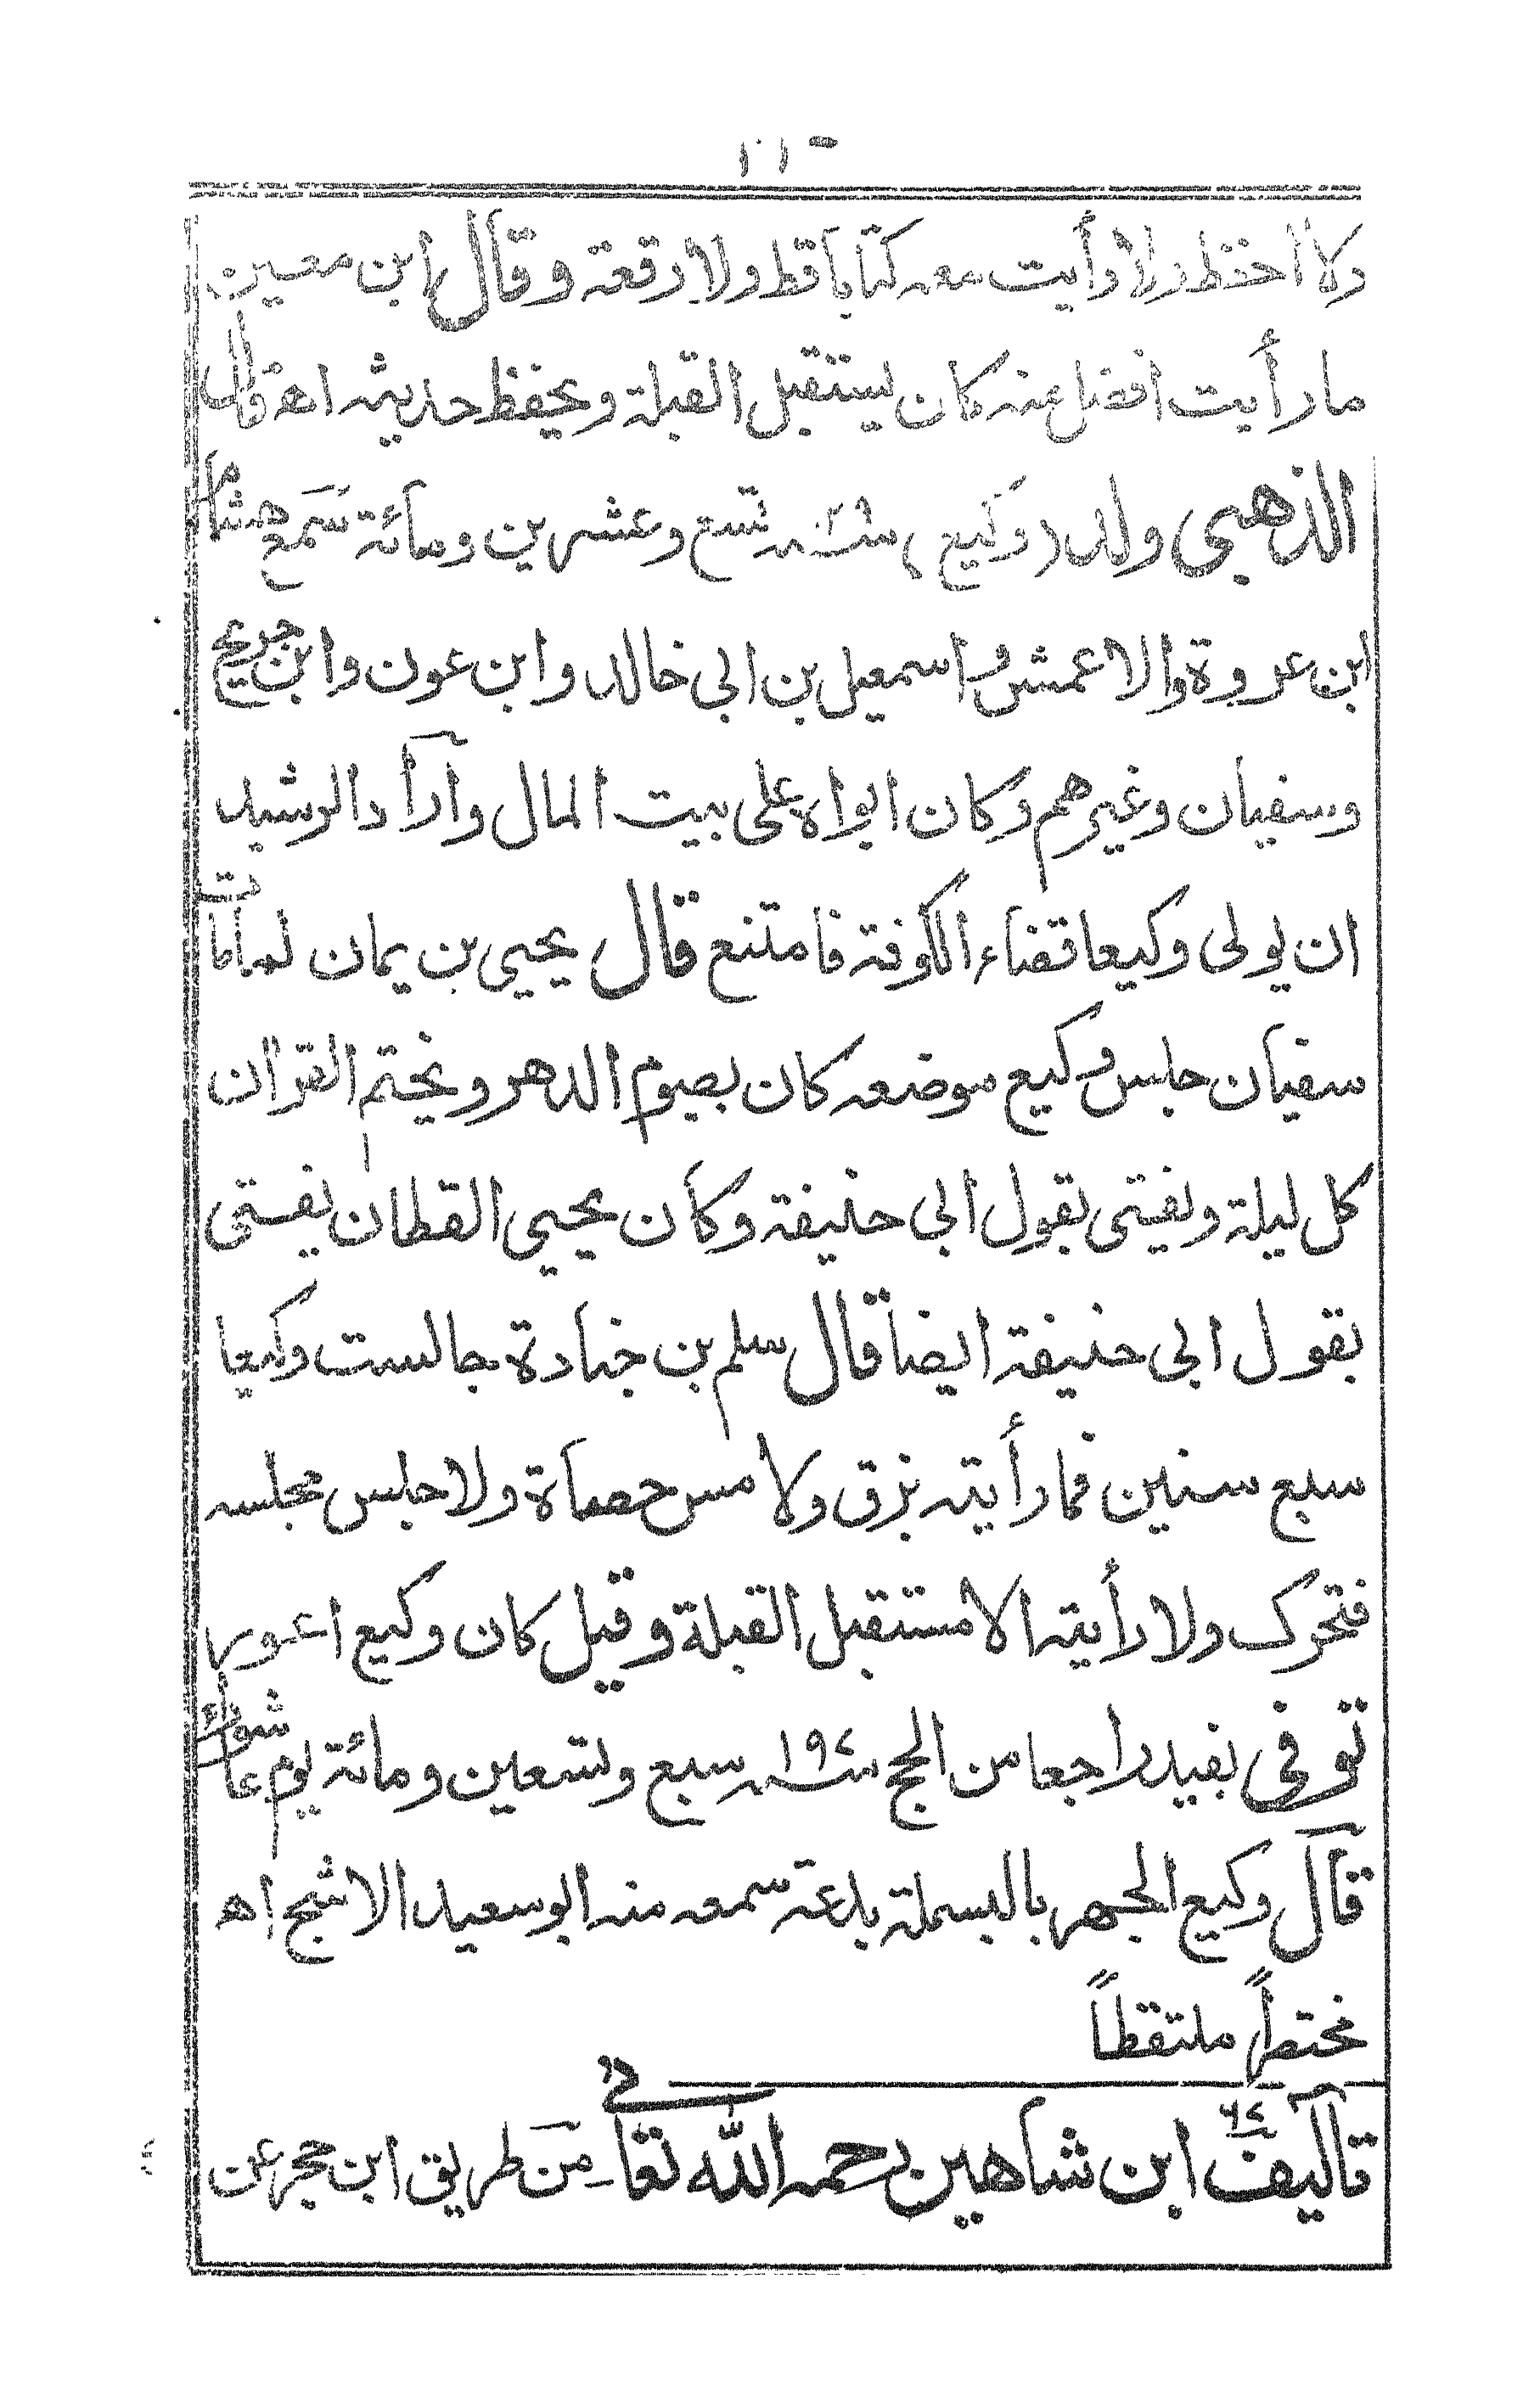 ولا احفظ ولا رأيت معه كتابا قط ولا رقعة وقال ابن معين
ما رأيت افضل منه كان يستقبل القبلة ويحفظ حديثه اھ قال
الذهبى ولد (وكيع) ١٢٩سنه تسع وعشرين ومائة سمع هشام
ابن عروة والاعمش واسمعيل بن ابى خالد وابن عون وابن جريج
وسفيان وغيرهم وكان ابواه على بيت المال وأراد الرشيد
ان يولى وكيعا قضاء الكوفة فامتنع قال يحيى بن يمان لما مات
سفيان جلس وكيع موضعه كان يصوم الدهر ويختم القرآن
كل ليلة ويفتى بقول ابى حنيفة وكان يحيى القطان يفتى
بقول ابى حنيفة ايضا قال سلم بن جنادة جالست وكيعا
سبع سنين فما رأيته بزق ولا مس حصاة ولا جلس مجلسه
فتحرك ولا رأيته الا مستقبل القبلة وقيل كان وكيع اعور
توفى بفيد راجعا من الحج ١٩٧سنه سبع وتسعين ومائة يوم عاشوراء
قال وكيع الجهر بالبسملة بدعة سمعه منه ابو سعيد الاشج اھ
مختصراً ملتقطاً
تآليف ابن شاهين رحمه الله تعالى من طريق ابن حجر عن